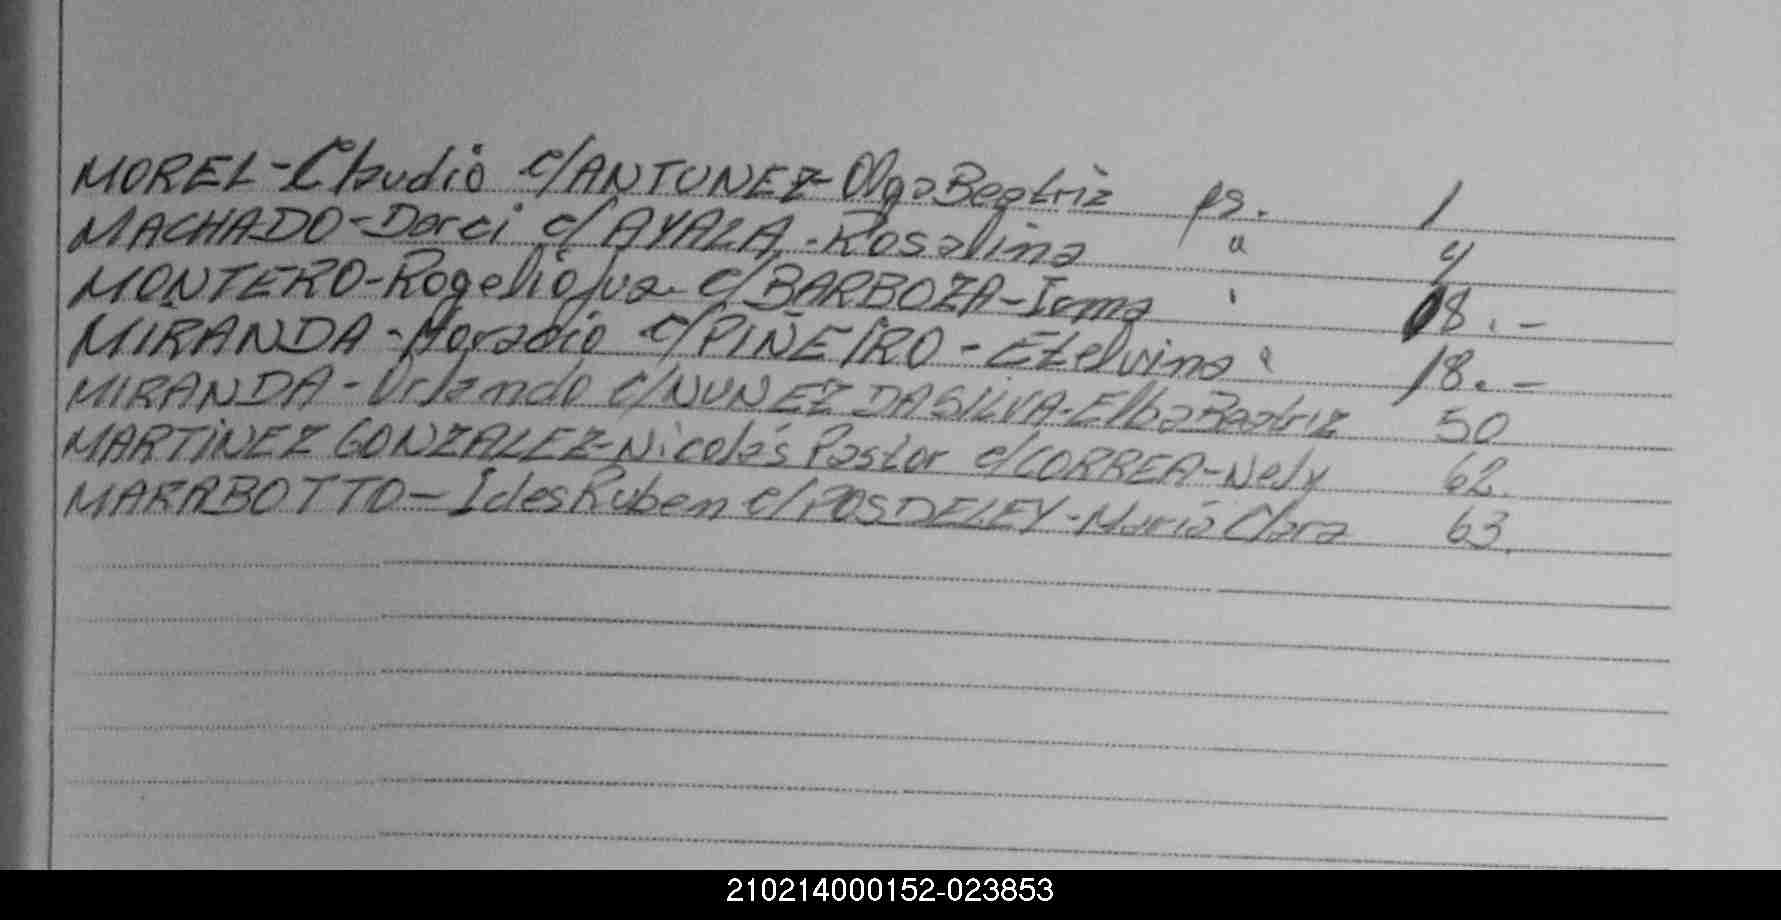 MOREL-Claudio c/ANTUNEZ-Olga Beatriz ps. 1
MACHADO-Darci c/AYALA-Rosalina " 4
MONTERO-Rogelio Jua c/BARBOZA-Irma ' 8.-
MIRANDA-Horacio c/PIÑEIRO-Etelvina " 18.-
MIRANDA-Orlando c/NUNEZ DASILVA-Elba Beatriz 50
MARTINEZ GONZALEZ-Nicolás Pastor c/CORREA-Nely 62.
MARABOTTO-Ides Ruben c/POSDELEY-María Clara 63.
210214000152-023853